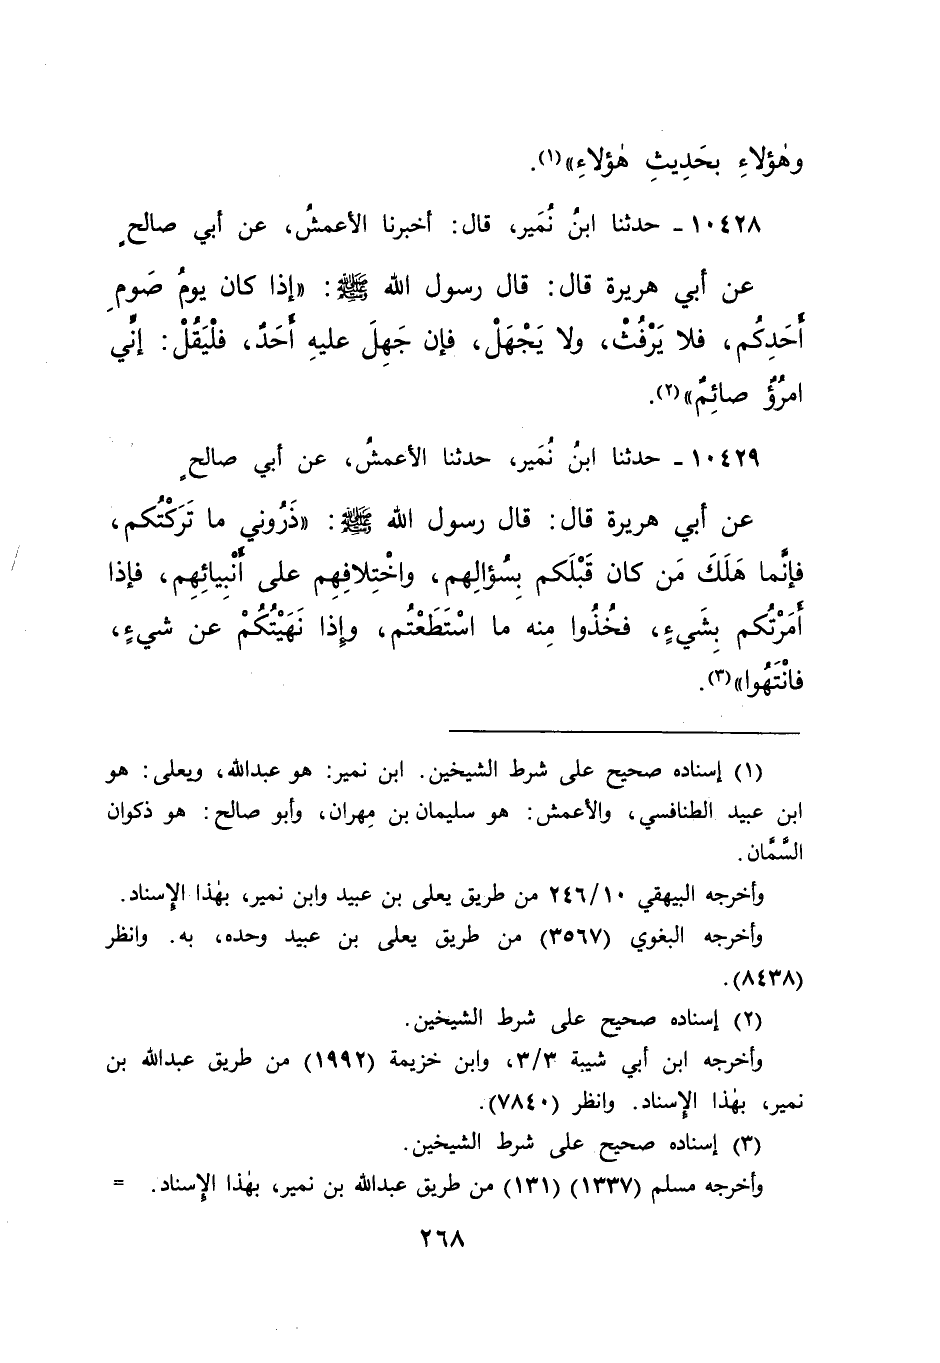 وهٰؤلاءِ بحَدِيثِ هٰؤلاءِ»(١).
١٠٤٢٨ ـ حدثنا ابنُ نُمَير، قال: أخبرنا الأعمشُ، عن أبي صالحٍ
عن أبي هريرة قال: قال رسول الله ﷺ: «إذا كان يومُ صَومِ
أَحَدِكُم، فلا يَرْفُثْ، ولا يَجْهَلْ، فإن جَهِلَ عليهِ أَحَدٌ، فلْيَقُلْ: إنِّي
امرُؤٌ صائِمٌ»(٢).
١٠٤٢٩ ـ حدثنا ابنُ نُمَير، حدثنا الأعمشُ، عن أبي صالحٍ
عن أبي هريرة قال: قال رسول الله ﷺ: «ذَرُوني ما تَرَكْتُكم،
فإنَّما هَلَكَ مَن كان قَبْلَكم بِسُؤالِهم، واخْتِلافِهم على أَنْبِيائِهِم، فإذا
أَمَرْتُكم بِشَيءٍ، فخُذُوا مِنه ما اسْتَطَعْتُم، وإذا نَهَيْتُكُمْ عن شيءٍ،
فانْتَهُوا»(٣).
(١) إسناده صحيح على شرط الشيخين. ابن نمير: هو عبدالله، ويعلى: هو
ابن عبيد الطنافسي، والأعمش: هو سليمان بن مِهران، وأبو صالح: هو ذكوان
السَّمَّان.
وأخرجه البيهقي ٢٤٦/١٠ من طريق يعلى بن عبيد وابن نمير، بهٰذا الإِسناد.
وأخرجه البغوي (٣٥٦٧) من طريق يعلى بن عبيد وحده، به. وانظر
(٨٤٣٨).
(٢) إسناده صحيح على شرط الشيخين.
وأخرجه ابن أبي شيبة ٣/٣، وابن خزيمة (١٩٩٢) من طريق عبدالله بن
نمير، بهٰذا الإِسناد. وانظر (٧٨٤٠).
(٣) إسناده صحيح على شرط الشيخين.
وأخرجه مسلم (١٣٣٧) (١٣١) من طريق عبدالله بن نمير، بهٰذا الإِسناد. =
٢٦٨